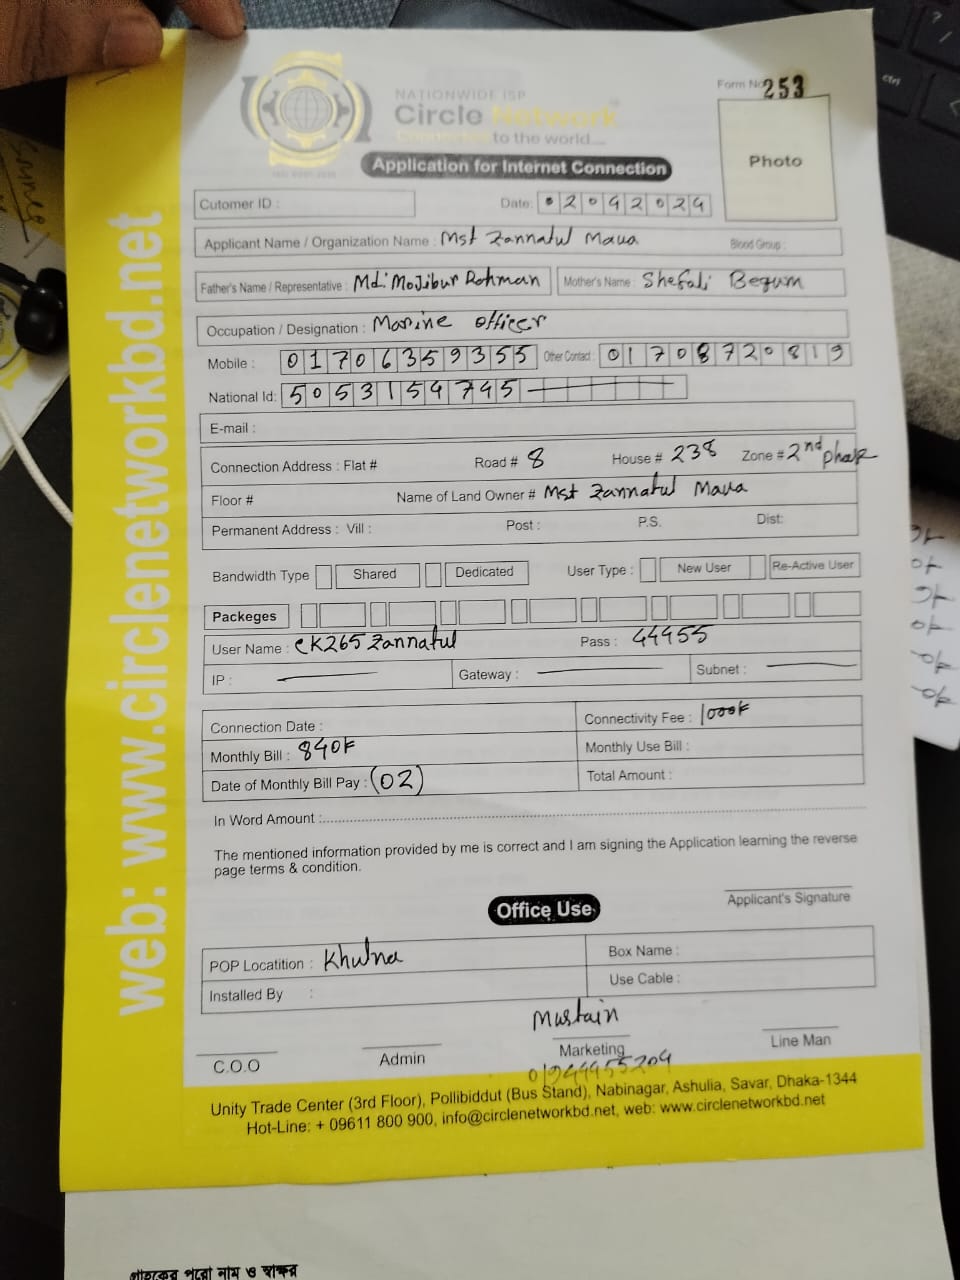 Form No 253
NATIONWIDE ISP
Circle Network
Connected to the world....
Application for Internet Connection
Photo
Cutomer ID :
Date: 02042024
Applicant Name / Organization Name : Mst Zannatul Maua Blood Group :
Father's Name / Representative : Md: Mojibur Rohman Mother's Name : Shefali Begum
Occupation / Designation : Marine officer
Mobile : 01706359355 Other Contact : 01708720819
National Id: 5053154745
E-mail :
Connection Address : Flat # Road # 8 House # 238 Zone # 2nd phase
Floor # Name of Land Owner # Mst Zannatul Maua
Permanent Address : Vill : Post : P.S. Dist:
Bandwidth Type Shared Dedicated User Type : New User Re-Active User
Packeges
User Name : CK265Zannatul Pass : 44455
IP : Gateway : Subnet :
Connection Date : Connectivity Fee : 1000৳
Monthly Bill : 840৳ Monthly Use Bill :
Date of Monthly Bill Pay : (02) Total Amount :
In Word Amount :
The mentioned information provided by me is correct and I am signing the Application learning the reverse
page terms & condition.
Applicant's Signature
Office Use
POP Locatition : Khulna Box Name :
Installed By : Use Cable :
Mustain
C.O.O Admin Marketing Line Man
01944455204
Unity Trade Center (3rd Floor), Pollibiddut (Bus Stand), Nabinagar, Ashulia, Savar, Dhaka-1344
Hot-Line: + 09611 800 900, info@circlenetworkbd.net, web: www.circlenetworkbd.net
web: www.circlenetworkbd.net
গ্রাহকের পুরো নাম ও স্বাক্ষর